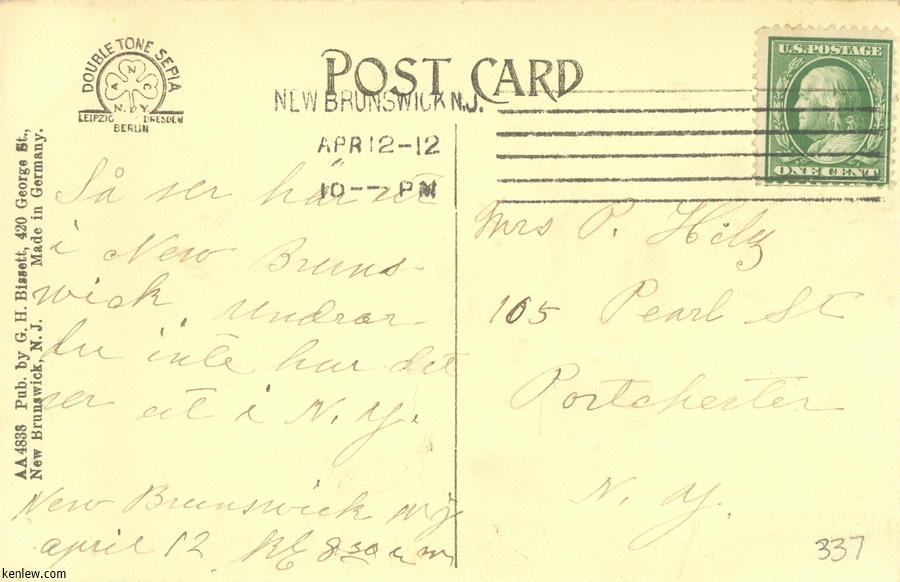 DOUBLE TONE SEPIA
N
A C
N.Y
LEIPZIG DRESDEN
BERLIN
POST CARD
NEW BRUNSWICK N.J.
APR 12-12
10-- PM
U.S. POSTAGE
ONE CENT
AA4838 Pub. by G. H. Bissett, 420 George St.,
New Brunswick, N. J. Made in Germany.
Så ser här ut
i New Bruns-
wick undrar
du inte hur det
ser ut i N. Y.
New Brunswick N J
april 12 8 30 a m
Mrs P.
105 Pearl St
Portchester
N. Y.
337
kenlew.com